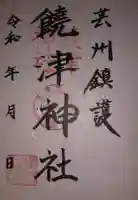 芸州鎮護
饒津神社
令和年月日